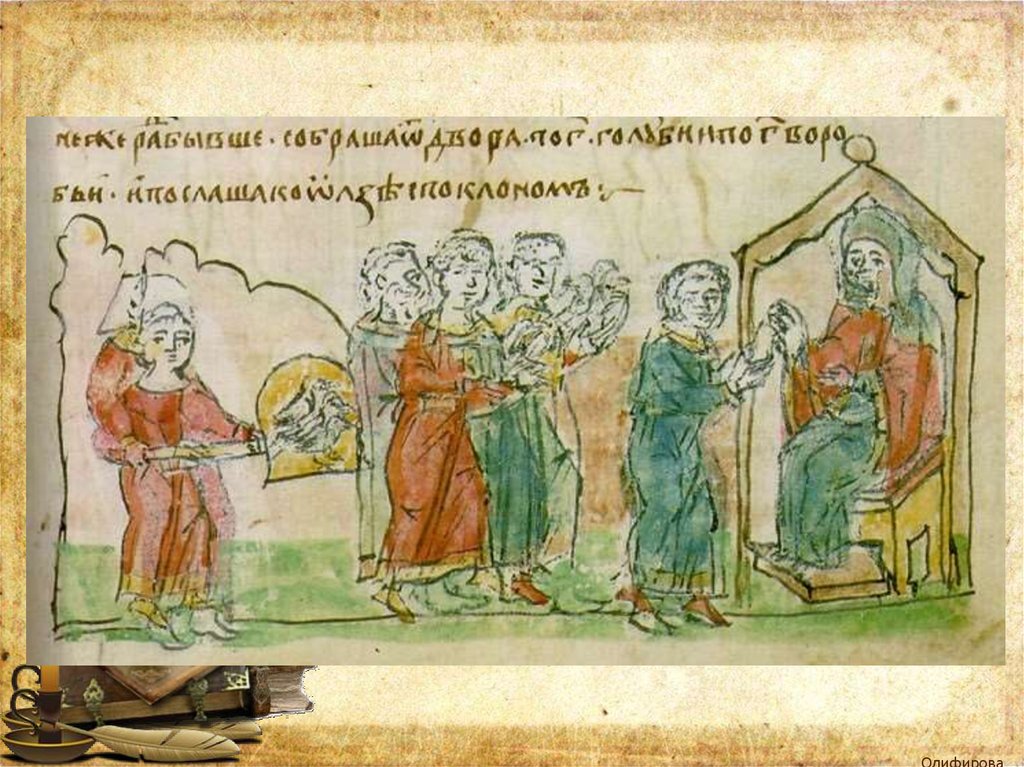 неже ради бывше · собрашаѿ двора · по г҃ · голуби и по г҃ воро
бьи · и послаша ко ѡлзѣ с поклономъ :
Олифирова